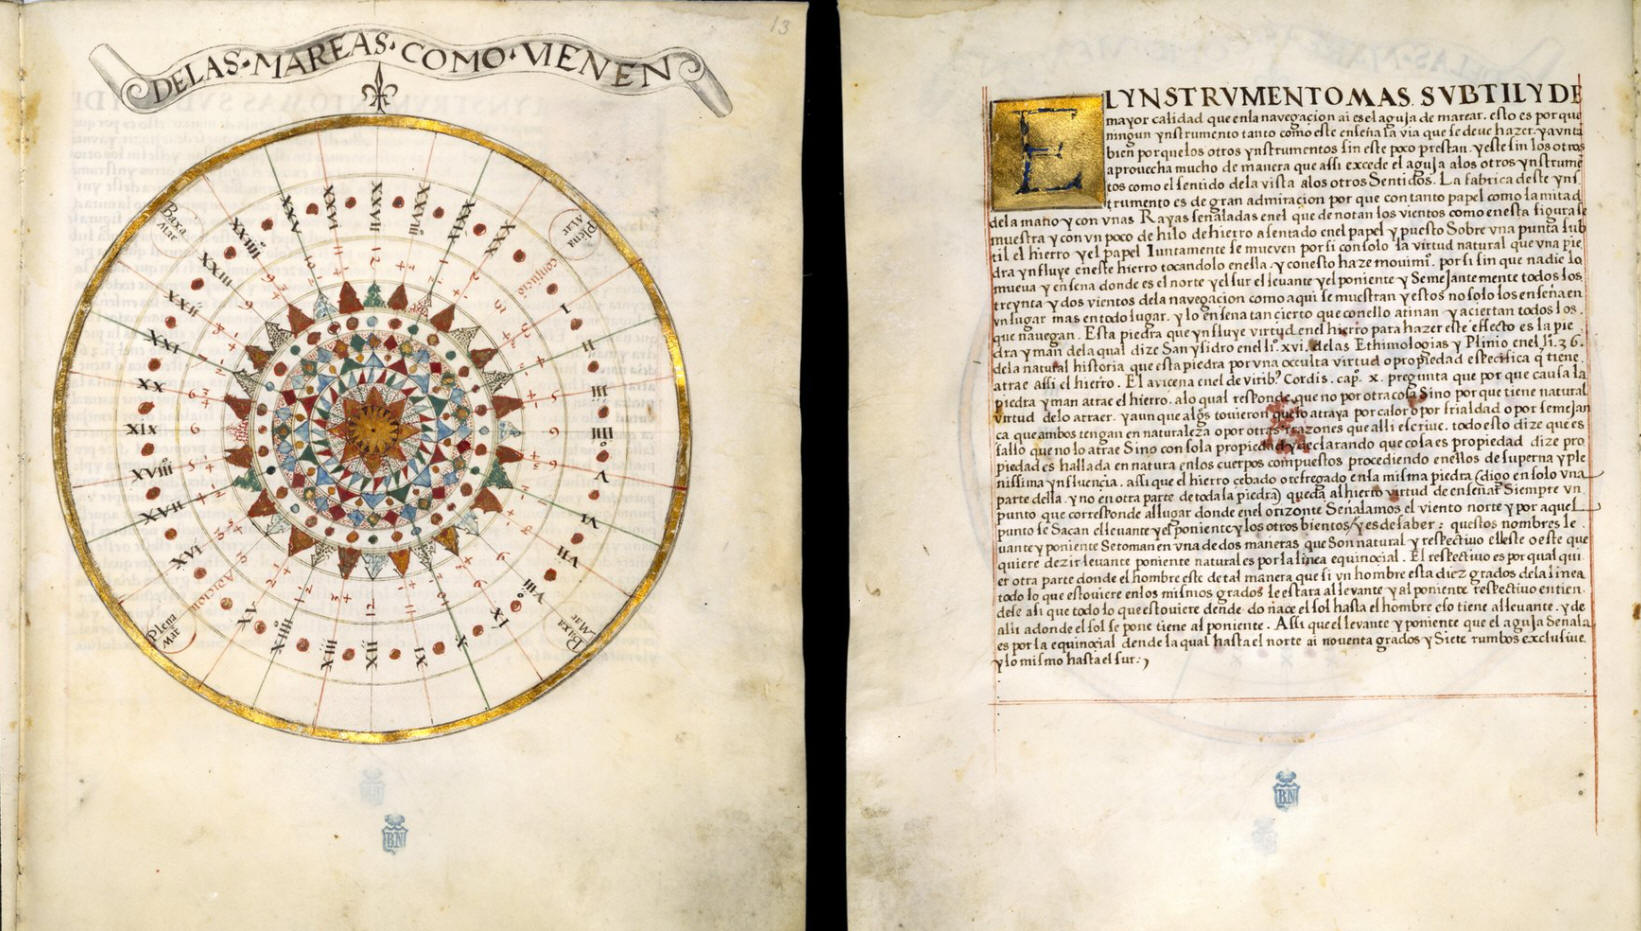 13
DE LAS · MAREAS · COMO · VIENEN
Plena Mar
conjuncio
I
II
III
IIII
V
VI
VII
VIII
Baxa Mar
IX
X
XI
XII
XIII
XIIII
XV
Plena Mar
XVI
XVII
XVIII
XIX
XX
XXI
XXII
XXIII
XXIIII
Baxa Mar
XXV
XXVI
XXVII
XXVIII
XXIX
XXX
BN
EL YNSTRVMENTO MAS SVBTIL Y DE
mayor calidad que en la navegacion ai es el aguja de marear. esto es por que
ningun ynstrumento tanto como este enseña la via que se deve hazer. y avnta
bien porque los otros ynstrumentos sin este poco prestan. y este sin los otros
aprouecha mucho de manera que assi excede el aguja alos otros ynstrumē
tos como el sentido dela vista alos otros Sentidos. La fabrica deste yns
trumento es de gran admiracion por que con tanto papel como la mitad
dela mano y con vnas Rayas señaladas enel que denotan los vientos como enesta figura se
muestra y con vn poco de hilo de hierro asentado enel papel y puesto Sobre vna punta sub
til el hierro y el papel Iuntamente se mueven por si con solo la virtud natural que vna pie
dra ynfluye eneste hierro tocandolo enella. y con esto haze mouimi°. por si sin que nadie lo
mueua y enseña donde es el norte y el sur el levante y el poniente y Semejantemente todos los
treynta y dos vientos dela navegacion como aqui se muestran y estos no solo los enseña en
vn lugar mas en todo lugar. y lo enseña tan cierto que con ello atinan y aciertan todos los.
que nauegan. Esta piedra que ynfluye virtud enel hierro para hazer este effecto es la pie
dra yman dela qual dize San ysidro enel li°. xvi. delas Ethimologias y Plinio enel li. 36.
dela natural historia que esta piedra por vna occulta virtud o propiedad especifica q̄ tiene.
atrae assi el hierro. El avicena enel de virib° Cordis. cap°. x. pregunta que por que causa la
piedra yman atrae el hierro. alo qual responde que no por otra cosa Sino por que tiene natural
virtud delo atraer. y aun que algs touieron que lo atraya por calor o por frialdad o por semejan
ca que ambos tengan en naturaleza o por otras razones que alli escriue. todo esto dize que es
falso que no lo atrae Sino con sola propiedad y declarando que cosa es propiedad dize pro
piedad es hallada en natura enlos cuerpos compuestos procediendo enellos de superna y ple
nissima ynfluencia. assi que el hierro cebado o refregado enla misma piedra (digo en solo vna
parte della. y no en otra parte de toda la piedra) queda al hierro virtud de enseñar Siempre vn
punto que corresponde al lugar donde enel orizonte Señalamos el viento norte y por aquel
punto se Sacan el levante y el poniente y los otros bientos / y es de saber: questos nombres le
uante y poniente Se toman en vna de dos maneras que Son natural y respectiuo el leste o este que
quiere dezir levante poniente natural es por la linea equinocial. El respectiuo es por qual qui
er otra parte donde el hombre este de tal manera que si vn hombre esta diez grados dela linea
todo lo que estouiere enlos mismos grados le estara al levante y al poniente respectiuo entien
dese asi que todo lo que estouiere dende do nace el sol hasta el hombre eso tiene al levante. y de
alli adonde el sol se pone tiene al poniente. Assi que el levante y poniente que el aguja Señala
es por la equinoxial dende la qual hasta el norte ai noventa grados y Siete rumbos exclusiue.
y lo mismo hasta el sur:
BN